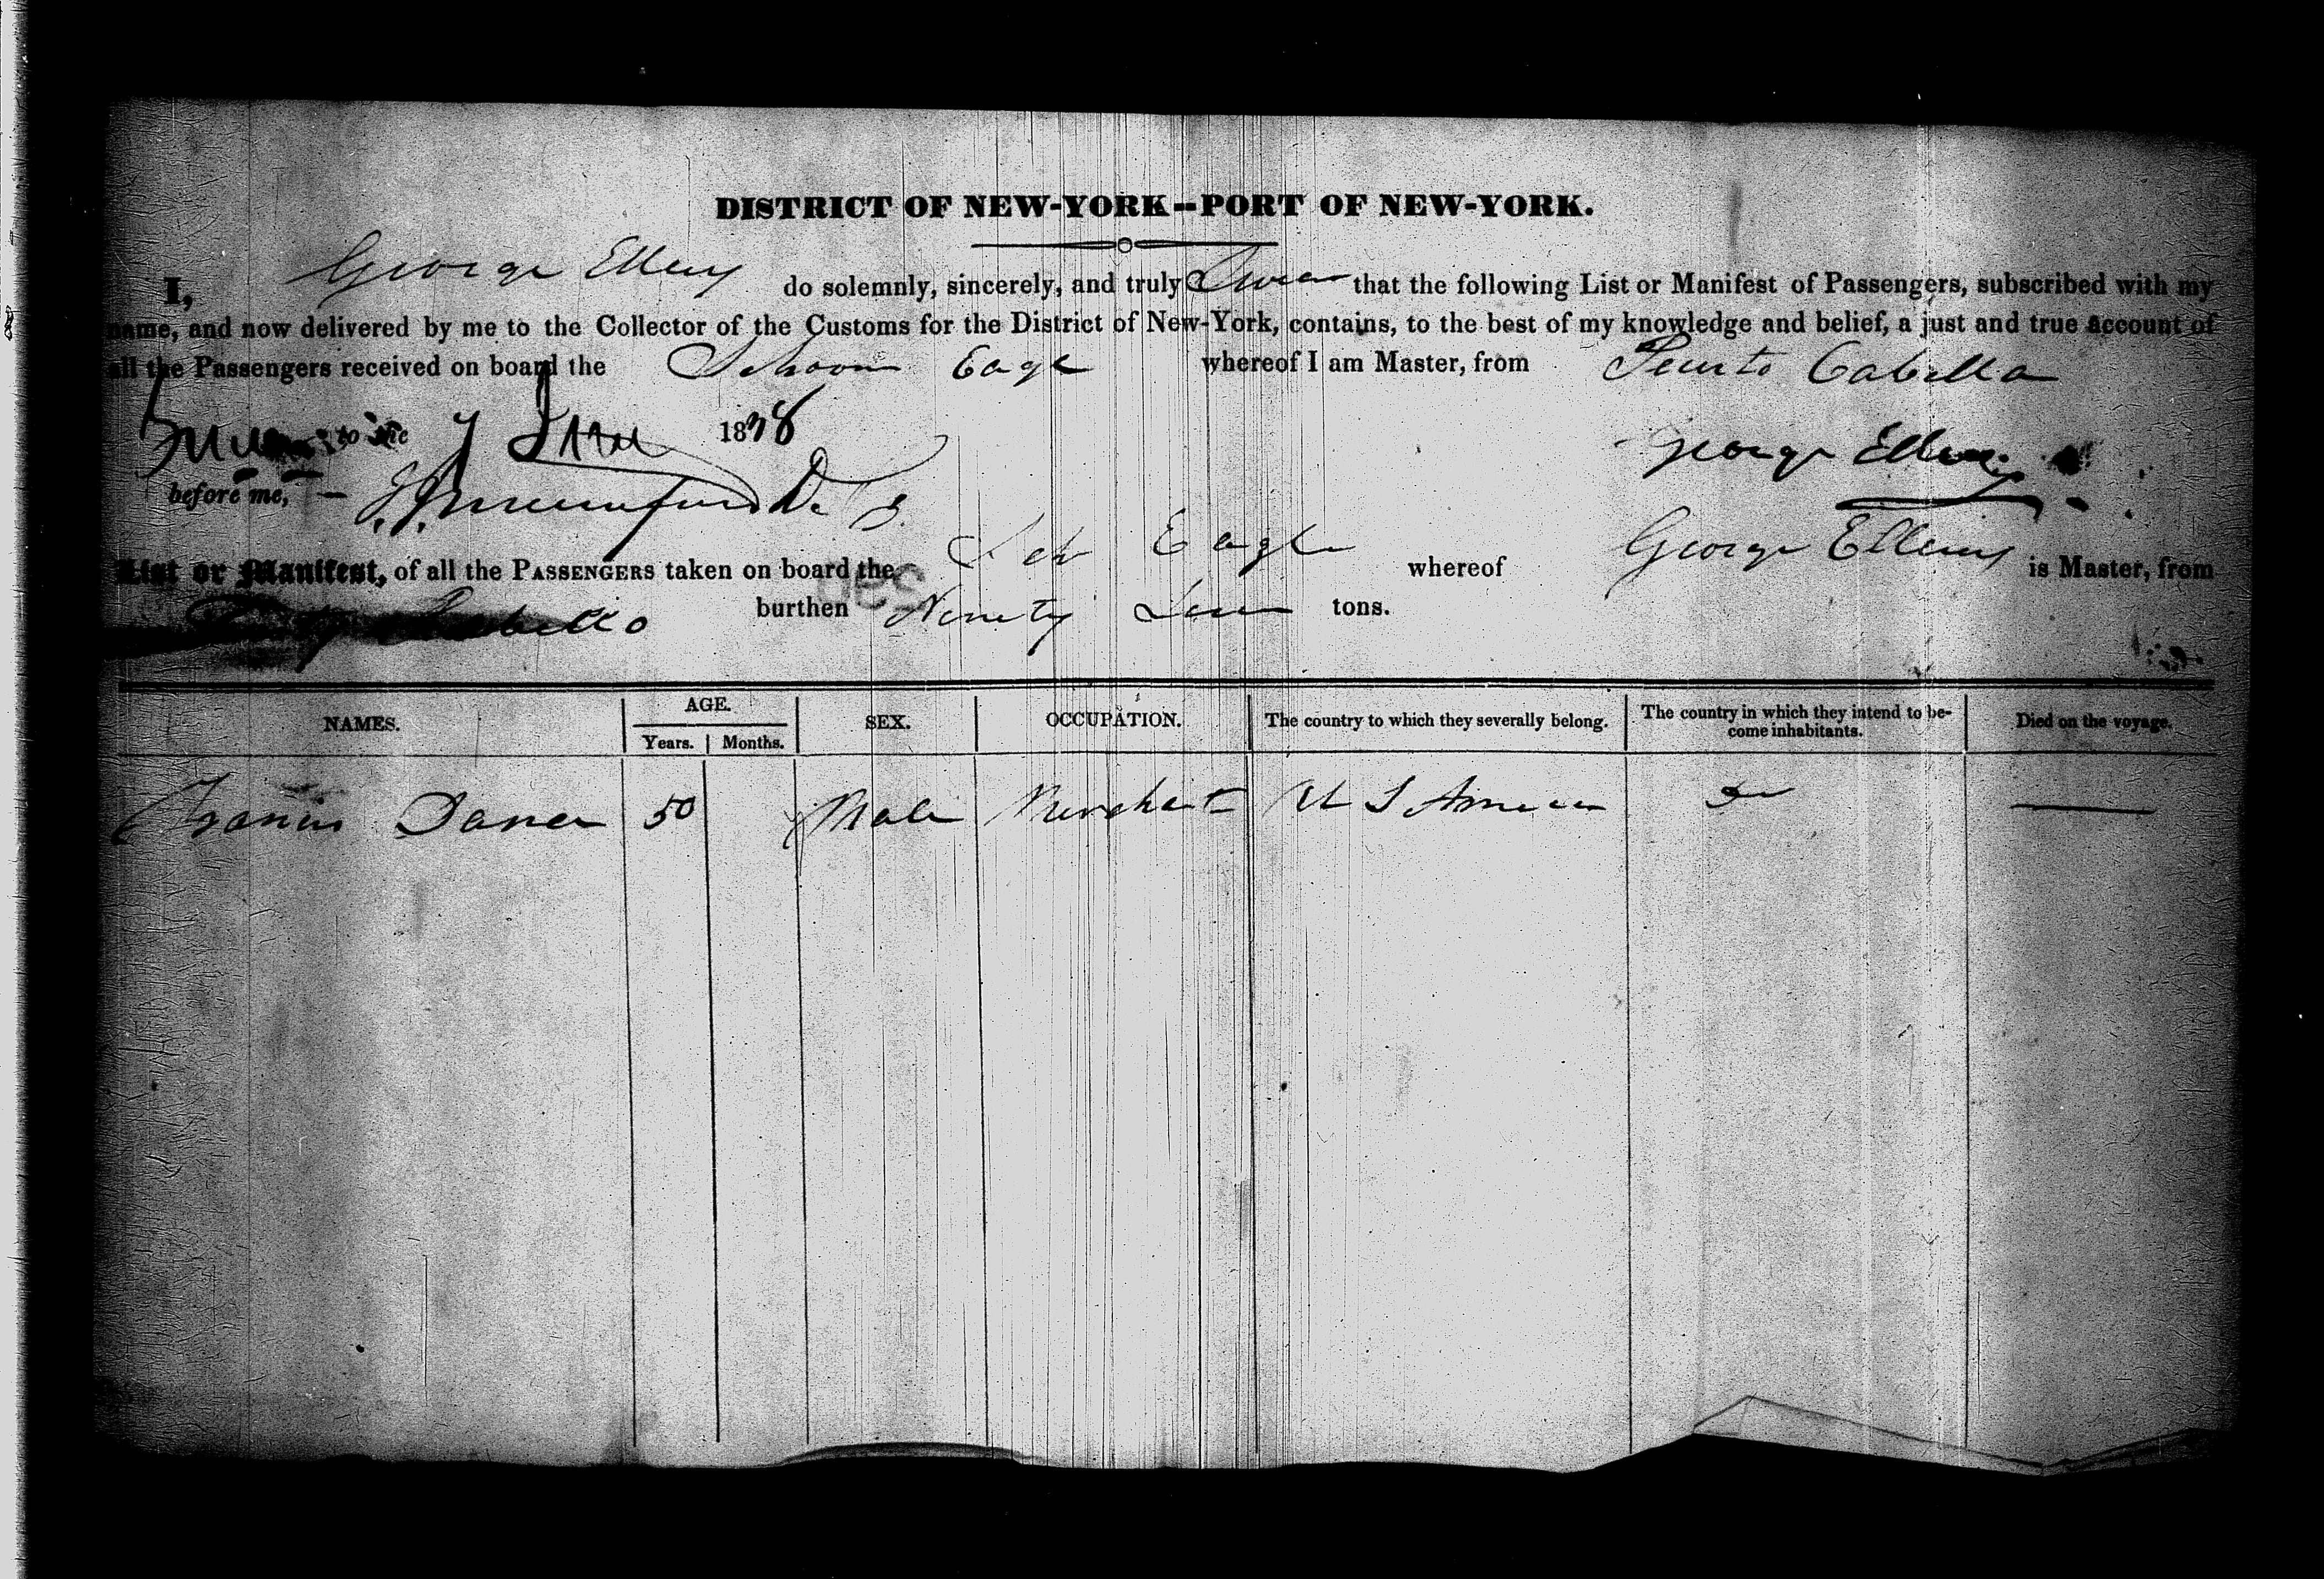 DISTRICT OF NEW-YORK--PORT OF NEW-YORK.
I, George Ellery do solemnly, sincerely, and truly Swear that the following List or Manifest of Passengers, subscribed with my
name, and now delivered by me to the Collector of the Customs for the District of New-York, contains, to the best of my knowledge and belief, a just and true account of
all the Passengers received on board the Schoon Eagle whereof I am Master, from Puerto Cabello
to the 1838 George Ellery
before me,
List or Manifest, of all the PASSENGERS taken on board the Schr Eagle whereof George Ellery is Master, from
Cabello burthen Ninety tons.
NAMES. AGE. Years. Months. SEX. OCCUPATION. The country to which they severally belong. The country in which they intend to become inhabitants. Died on the voyage.
Francis Dana 50 Male Merchant U S America Do